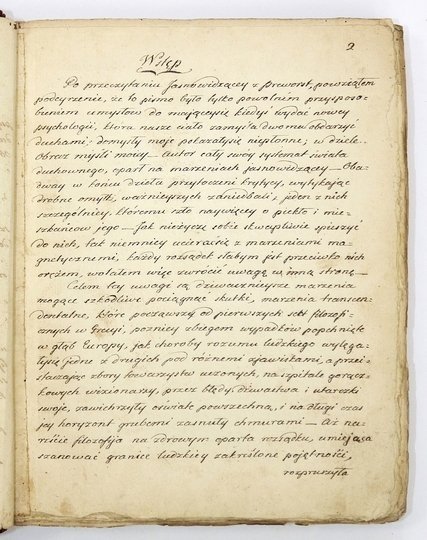 2
Wstęp
Po przeczytaniu Jasnowidzącey z Prevorst, powziąłem
podeyrzenie, że to pismo było tylko powolnem przysposo-
bieniem umysłów do maiącey się kiedyś wydać nowey
psychologii, która nasze ciało zamyśla dwoma obdarzyć
duchami; domysły moje pokazały się niepłonne; w dziele
obrcz myśli mowy — Autor cały swóy systemat świata
duchownego, oparł na marzeniach jasnowidzącey — Oba-
dway w końcu dzieła przytoczeni krytycy, wytykaiąc
drobne omyłki, ważnieyszych zaniedbali; jeden z nich
szczególniey, któremu szło naywięcey o piekło i mie-
szkańców jego — Jak nieżyczę sobie skwapliwie spieszyć
do nich, tak niemniey ucierać się z marzeniami ma-
gnetycznemi, każdy rozsądek słabym jest przeciwko nich
orężem, wolałem więc zwrócić uwagę w inną stronę —
Celem tey uwagi są dziwacznieysze marzenia
mogące szkodliwe pociągnąć skutki, marzenia transcen-
dentalne, które począwszy od pierwszych sekt filozofi-
cznych w Grecyi, pozniey zbiegiem wypadków popchnięte
w głąb Europy, jak choroby rozumu ludzkiego wylęga-
ły się jedne z drugich pod różnemi zjawiskami, a przei-
staczaiąc zbory towarzystw uczonych, na szpitale gorącz-
kowych wizionarzy, przez błędy dziwactwa i utarczki
swoje, zawichrzyły oświatę powszechną, i na długi czas
jey horyzont grubemi zasnuły chmurami — Aż na-
reście filozofija na zdrowym oparta rozsądku, umiejąca
szanować granice ludzkiey zakreślone pojętności,
rozpruszyła